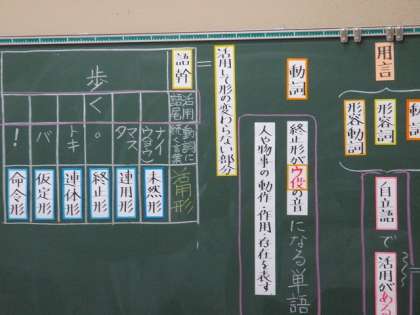 用言
動
形容詞
形容動詞
自立語で
活用がある
動詞
終止形がウ段の音になる単語
人や物事の動作・作用・存在を表す
活用して形の変わらない部分
=
語幹
歩
く
活用語尾
動詞に続く言葉
活用形
ナイ
(ウ・ヨウ)
未然形
マス
タ
連用形
。
終止形
トキ
連体形
バ
仮定形
!
命令形